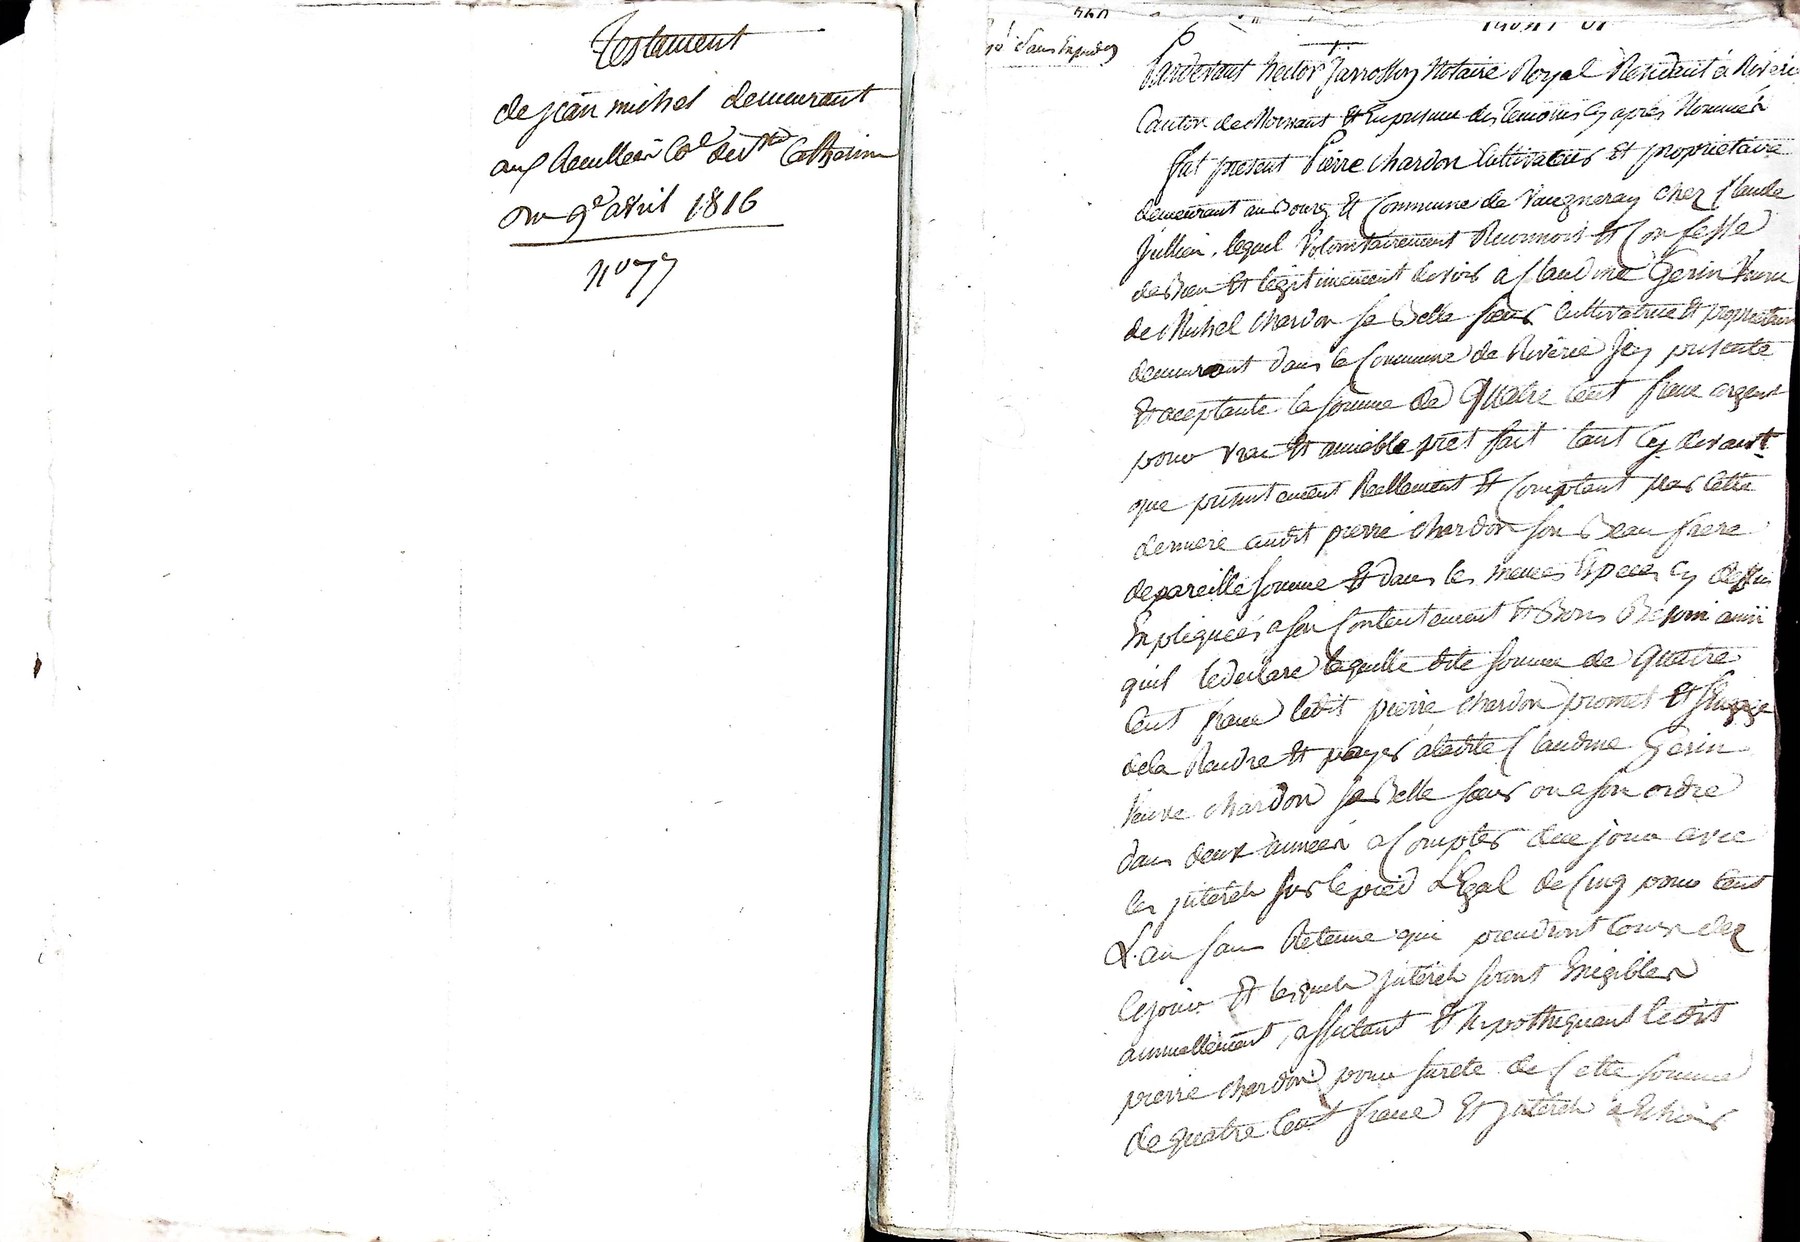 Testament
de jean michel demeurant
aux
du 9e avril 1816
n° 77
Pardevant hector Jarrosson Notaire Royal Résident à Riverie
Canton de Mornant Et En presence des Temoins Cy après Nommés
fut present Pierre chardon Cultivateur Et propriétaire
demeurant au Bourg Et Commune de Vaugneray chez Claude
Jullien, lequel Volontairement Reconnoit Et Confesse
de Bien Et legitimement devoir a Claudine Gerin Veuve
de Michel chardon sa Belle sœur Cultivatrice Et proprietaire
demeurant dans la Commune de Riverie Icy presente
Et aceptante la somme de Quatre Cent franc argent
pour vrai Et amiable prêt fait tant Cy devant
que presentement Reellement Et Comptant par Cette
derniere audit pierre chardon son Beau frere
de pareille somme Et dans les memes Especes Cy dessus
Expliquées a son Contentement Et Bons Besoin ainsi
quil le declare laquelle dite somme de Quatre
Cent franc ledit pierre chardon promet Et s'engage
de la Rendre Et payer a ladite Claudine Gerin
Veuve chardon sa Belle sœur ou a son ordre
dans deux années a Compter de ce jour avec
les jnterets sur le pied Légal de Cinq pour Cent
L'an sans Retenue qui prendront Cours dez
Ce jour Et lesquels jnterets seront Exigibles
annuellement, affectant Et hypothequant ledit
pierre chardon pour sureté de Cette somme
de quatre Cent franc Et jnterets a Echoir